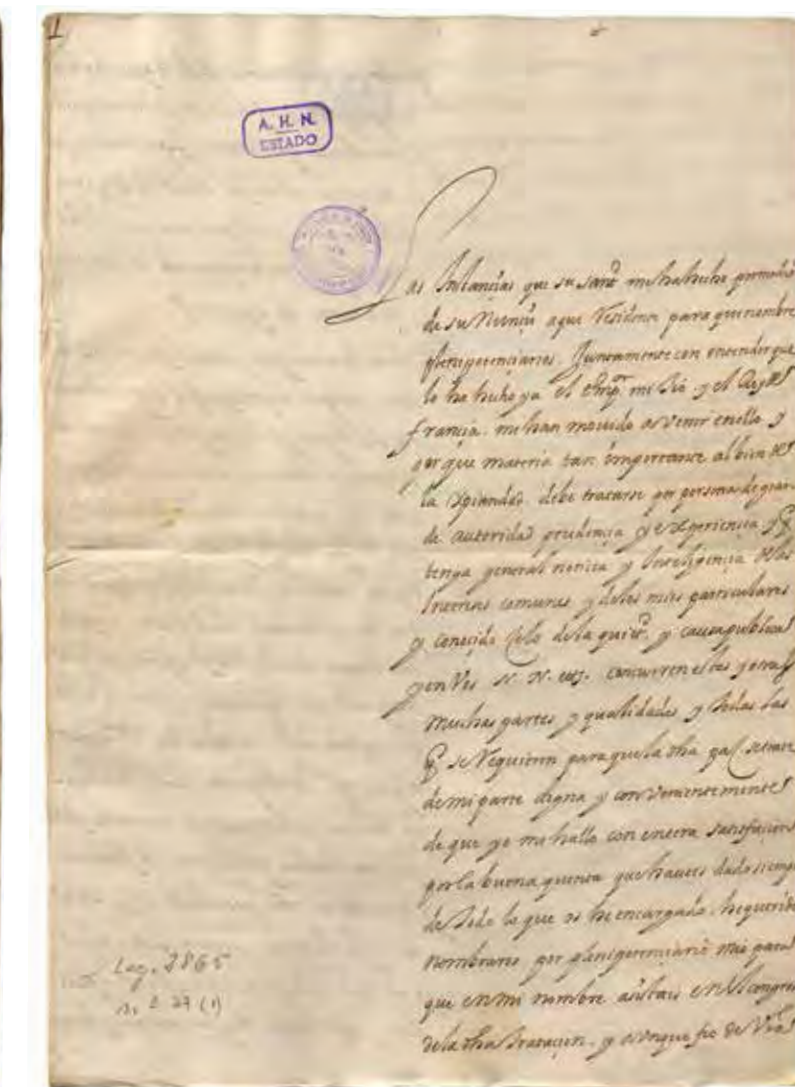 1
A. H. N.
ESTADO
Las Instancias que su Santd me ha hecho por medio
de su Nuncio aqui Residente para que nombre
plenipotenciarios. Juntamente con entender que
lo ha hecho ya el Empor mi tio y el Rey de
francia. me han movido a venir en ello y
por que materia tan importante al bien de
la Xpiandad. debe tratarse por persona de gran
de autoridad prudencia y experiencia y q
tenga general noticia y Inteligencia de las
Interesses comunes y de los mios particulares
y conocido Celo de la quietd. y causa publica
y en Vos N. N. etz. concurren estas y otras
muchas partes y qualidades y todas las
q se Requieren para que la dha paz se trate
de mi parte digna y convenientemente
de que yo me hallo con entera satisfacion
por la buena quenta que haveis dado siempre
de todo lo que os he encargado. he querido
nombraros por plenipotenciario mio para
que en mi nombre asistais en el Congreso
de la dha tratacion. y aunque fio de Vra
Leg. 2865
n. 27 (1)